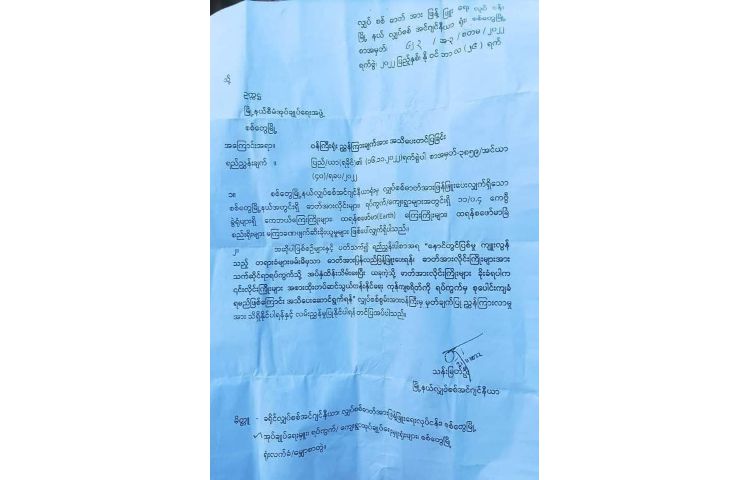 လျှပ် စစ် ဓာတ် အား ဖြန့် ဖြူး ရေး လုပ် ငန်း
မြို့ နယ် လျှပ်စစ် အင်ဂျင်နီယာ ရုံး၊ စစ်တွေမြို့
စာအမှတ်၊ ၆၂၃ / အ-၃ / စတမ / ၂၀၂၂
ရက်စွဲ၊ ၂၀၂၂ ပြည့်နှစ်၊ နို ဝင် ဘာ လ (၂၉) ရက်
သို့
ဥက္ကဋ္ဌ
မြို့နယ်စီမံအုပ်ချုပ်ရေးအဖွဲ့
စစ်တွေမြို့
အကြောင်းအရာ။ ဝန်ကြီးရုံး ညွှန်ကြားချက်အား အသိပေးတင်ပြခြင်း
ရည်ညွှန်းချက် ။ ပြည်/ယာ(ရခိုင်)၏ (၁၆.၁၁.၂၀၂၂)ရက်စွဲပါ စာအမှတ်-၃၈၅၉/အင်ယာ
(၄၀)/ရပေ/၂၀၂၂
၁။ စစ်တွေမြို့နယ်လျှပ်စစ်အင်ဂျင်နီယာရုံးမှ လျှပ်စစ်ဓာတ်အားဖြန့်ဖြူးပေးလျှက်ရှိသော
စစ်တွေမြို့နယ်အတွင်းရှိ ဓာတ်အားလိုင်းများ ရပ်ကွက်/ကျေးရွာများအတွင်းရှိ ၁၁/၀.၄ ကေဗွီ
ခွဲရုံများရှိ ကေဘယ်ကြေးကြိုးများ၊ ထရန်စဖော်မာ(Earth) ကြေးကြိုးများ၊ ထရန်စဖော်မာခြံ
စည်းရိုးများ မကြာခဏဖျက်ဆီးခိုးယူမှုများ ဖြစ်ပေါ်လျှက်ရှိပါသည်။
၂။ အဆိုပါဖြစ်စဉ်များနှင့် ပတ်သက်၍ ရည်ညွှန်းပါစာအရ "နှောင်တွင်ပြစ်မှု ကျူးလွန်
သည့် တရားခံများဖမ်းမိမှသာ ဓာတ်အားပြန်လည်ဖြန့်ဖြူးပေးရန်၊ ဓာတ်အားလိုင်းကြိုးများအား
သက်ဆိုင်ရာရပ်ကွက်သို့ အပ်နှံထိန်းသိမ်းစေပြီး ယခုကဲ့သို့ ဓာတ်အားလိုင်းကြိုးများ ခိုးခံရပါက
၎င်းလိုင်းကြိုးများ အစားထိုးတပ်ဆင်သွယ်တန်းနိုင်ရေး ကုန်ကျစရိတ်ကို ရပ်ကွက်မှ စုပေါင်းကျခံ
ရမည်ဖြစ်ကြောင်း အသိပေးဆောင်ရွက်ရန်" လျှပ်စစ်စွမ်းအားဝန်ကြီးမှ မှတ်ချက်ပြု ညွှန်ကြားလာမှု
အား သိရှိနိုင်ပါရန်နှင့် လမ်းညွှန်မှုပြုနိုင်ပါရန် တင်ပြအပ်ပါသည်။
သန်းမြတ်ဦး
မြို့နယ်လျှပ်စစ်အင်ဂျင်နီယာ
မိတ္တူ - ခရိုင်လျှပ်စစ်အင်ဂျင်နီယာ၊ လျှပ်စစ်ဓာတ်အားဖြန့်ဖြူးရေးလုပ်ငန်း၊ စစ်တွေမြို့
အုပ်ချုပ်ရေးမှူး၊ ရပ်ကွက်/ ကျေးရွာအုပ်ချုပ်ရေးမှူးရုံးများ၊ စစ်တွေမြို့
ရုံးလက်ခံ/မျှောစာတွဲ။